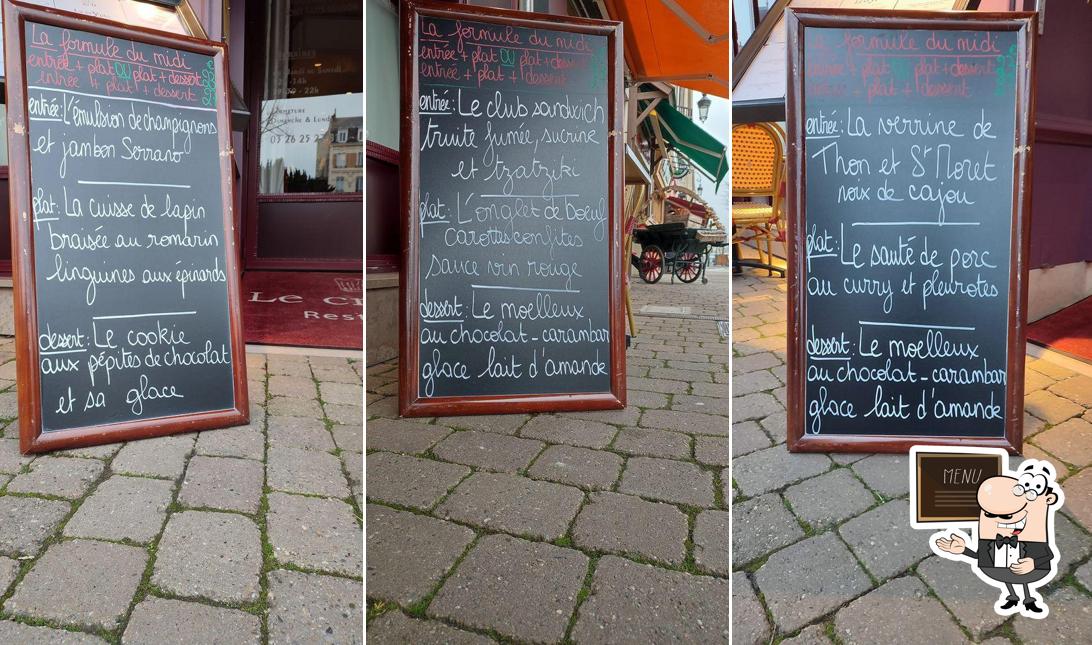 La formule du midi
entrée + plat OU plat + dessert
entrée + plat + dessert
entrée: L'émulsion de champignons
et jambon Serrano
plat: La cuisse de lapin
braisée au romarin
linguines aux épinards
dessert: Le cookie
aux pépites de chocolat
et sa glace
14h
22h
Dimanche & Lundi
03 26 25 2
Le c
Rest
La formule du midi
entrée + plat OU plat + dessert
entrée + plat + dessert
entrée: Le club sandwich
truite fumée, sucrine
et tzatziki
plat: L'onglet de boeuf
carottes confites
sauce vin rouge
dessert: Le moelleux
au chocolat - carambar
glace lait d'amande
La formule du midi
entrée + plat OU plat + dessert
+ plat + dessert
entrée: La verrine de
Thon et St Moret
noix de cajou
plat: Le sauté de porc
au curry et pleurotes
dessert: Le moelleux
au chocolat - carambar
glace lait d'amande
MENU